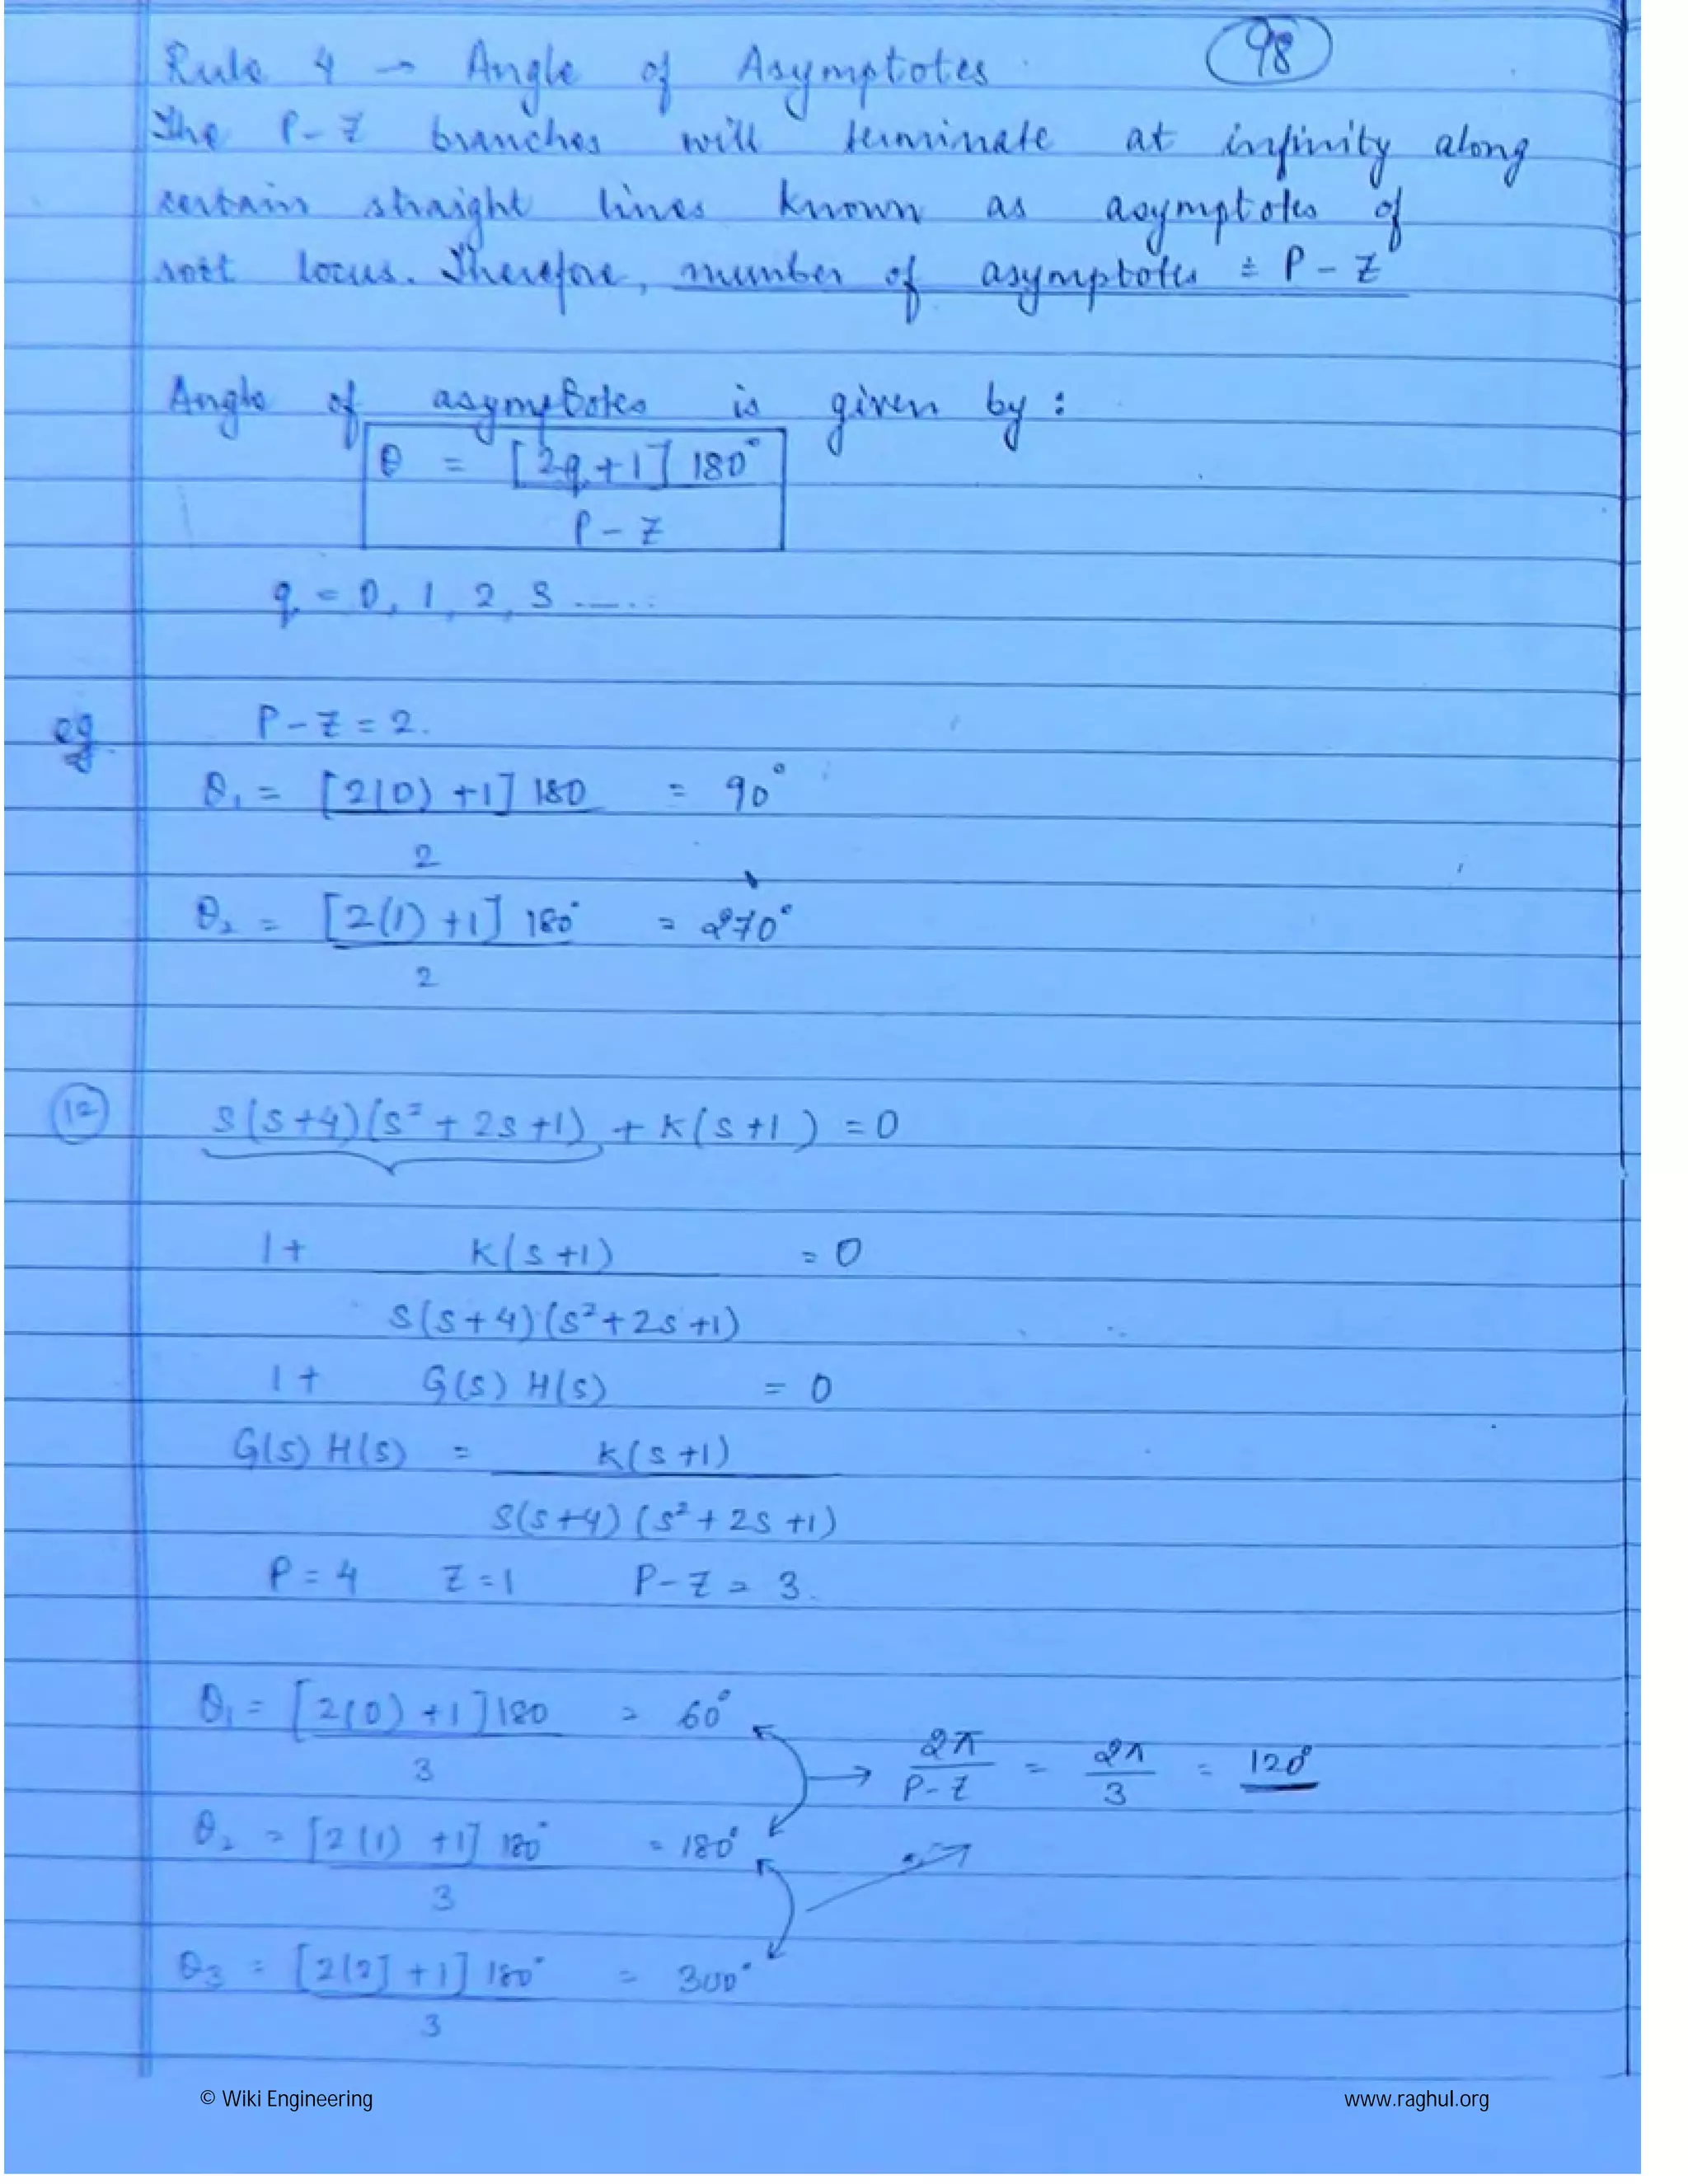 98
Rule 4 → Angle of Asymptotes
The P-Z branches will terminate at infinity along
certain straight lines known as asymptotes of
root locus. Therefore, number of asymptotes = P - Z
Angle of asymptotes is given by :
θ = [2q+1] 180°
P - Z
q = 0, 1, 2, 3 ......
eg P - Z = 2.
θ₁ = [2(0) +1] 180 = 90°
2
θ₂ = [2(1) +1] 180° = 270°
2
12 S(S+4)(S² + 2S+1) + K(S+1) = 0
1+ K(S+1) = 0
S(S+4)(S²+2S+1)
1+ G(S) H(S) = 0
G(S) H(S) = K(S+1)
S(S+4) (S²+2S+1)
P = 4 Z = 1 P-Z = 3.
θ₁ = [2(0) +1] 180 = 60°
3
→ 2π = 2π = 120°
P-Z 3
θ₂ = [2(1) +1] 180° = 180°
3
θ3 = [2(2] +1] 180° = 300°
3
© Wiki Engineering www.raghul.org